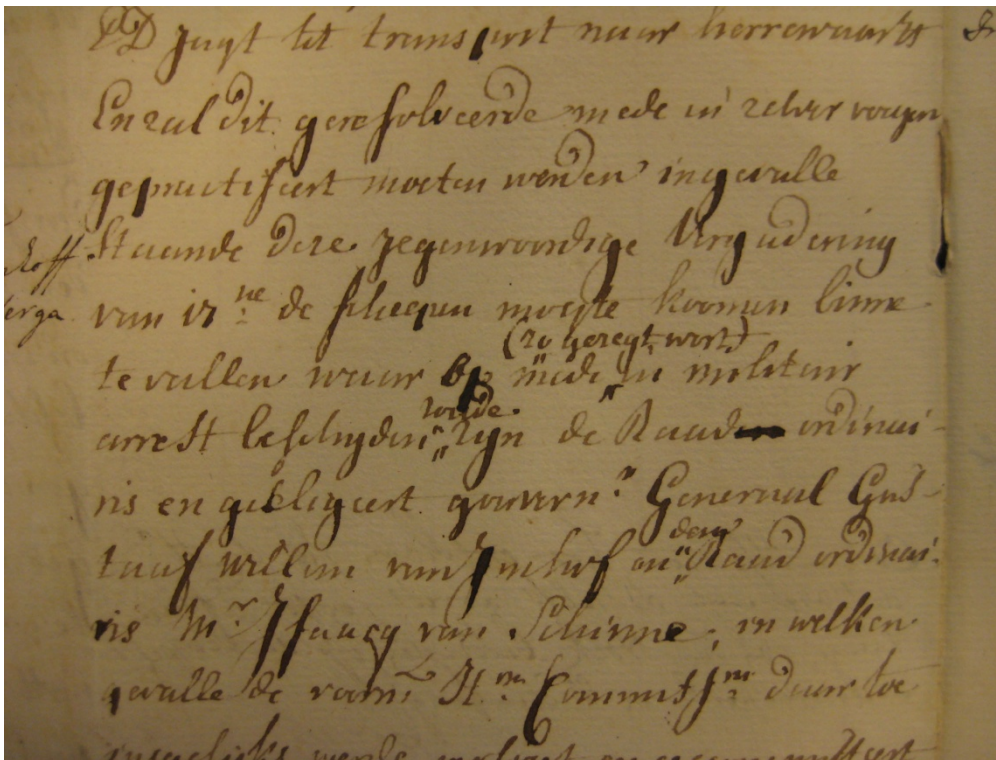 Jagt tot transport naar herrewaarts
En zal dit geresolveerde mede in zelver voegen
gepractiseert moeten werden ingevalle
Staande deze jegenwoordige Vergadering
van 17ne de scheepen mogte koomen binne
te vallen waar op mede in militair
(zo gezegt wort)
arrest bescheyden zijn de Raad ordinai-
worde
ris en geëligeert gouvern:r Generaal Gus-
taaf willem van Imhof en Raad ordinai-
den
ris Mr Isaacq van Schinne, in welken
gevalle de voorm: Hrn Commissn daar toe
werde en